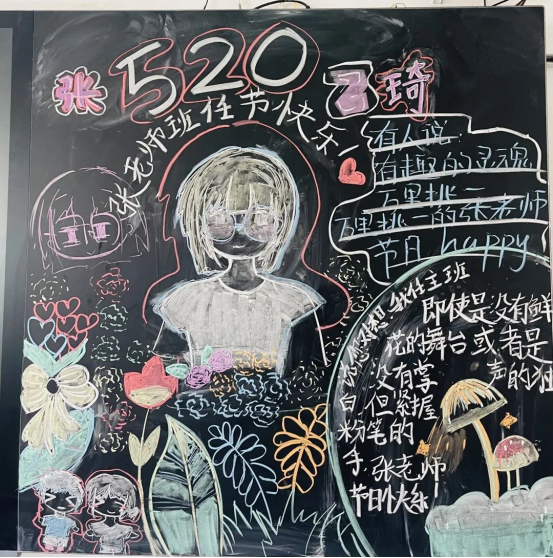 张 520 己琦
张老师班任节快乐!
有人说
有趣的灵魂
万里挑一
万里挑一的张老师
节日 happy
我任主班
即使是没有鲜
花的舞台或者是
没有掌声的独
白 但紧握
粉笔的
手,张老师
节日快乐!